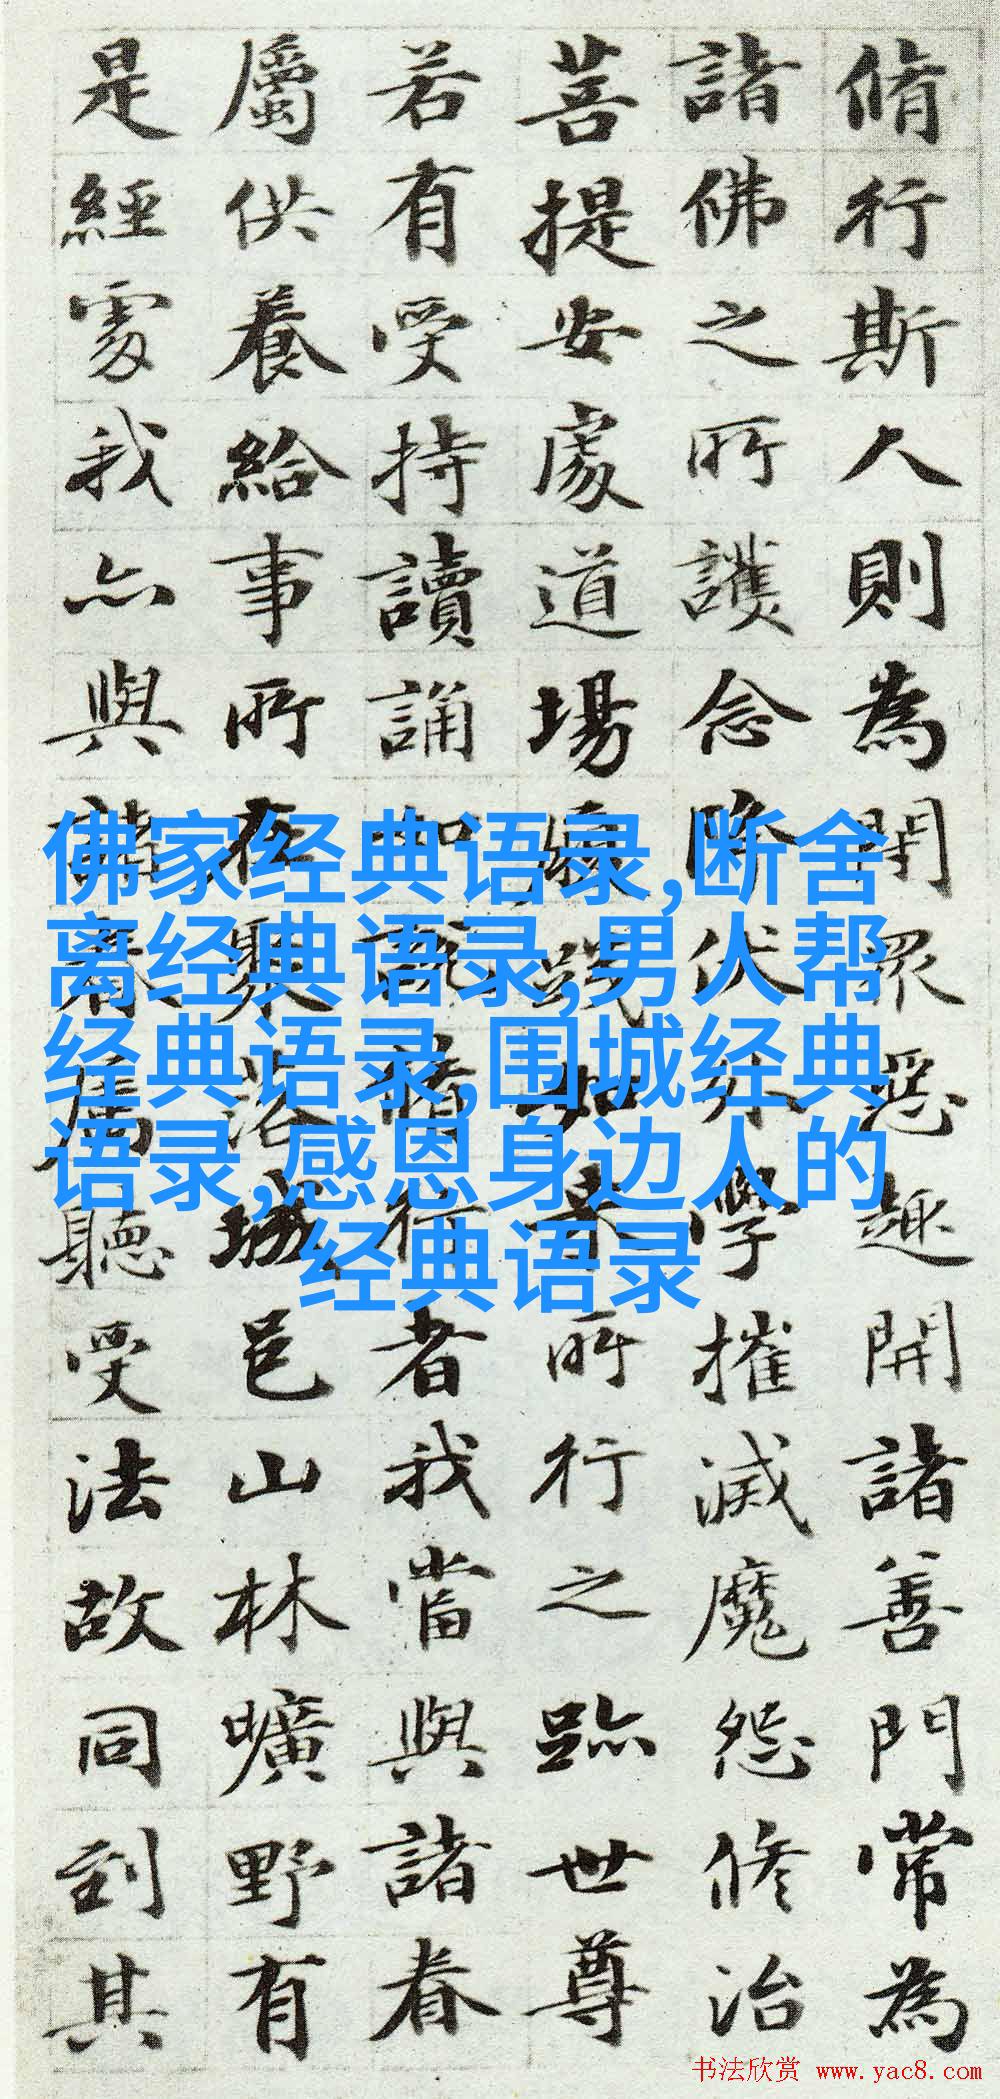 脩行斯人則為閇眾惡趣開諸善門常為
諸佛之所護念降伏外學摧滅魔怨修治
菩提安處道場履踐如來所行之跡世尊
若有受持讀誦如說脩行者我當與諸眷
屬供養給事所在聚落城邑山林曠野有
是經處我亦與諸眷屬聽受法故同到其
佛家经典语录,断舍
离经典语录,男人帮
经典语录,围城经典
语录,感恩身边人的
经典语录
书法欣赏 www.yac8.com